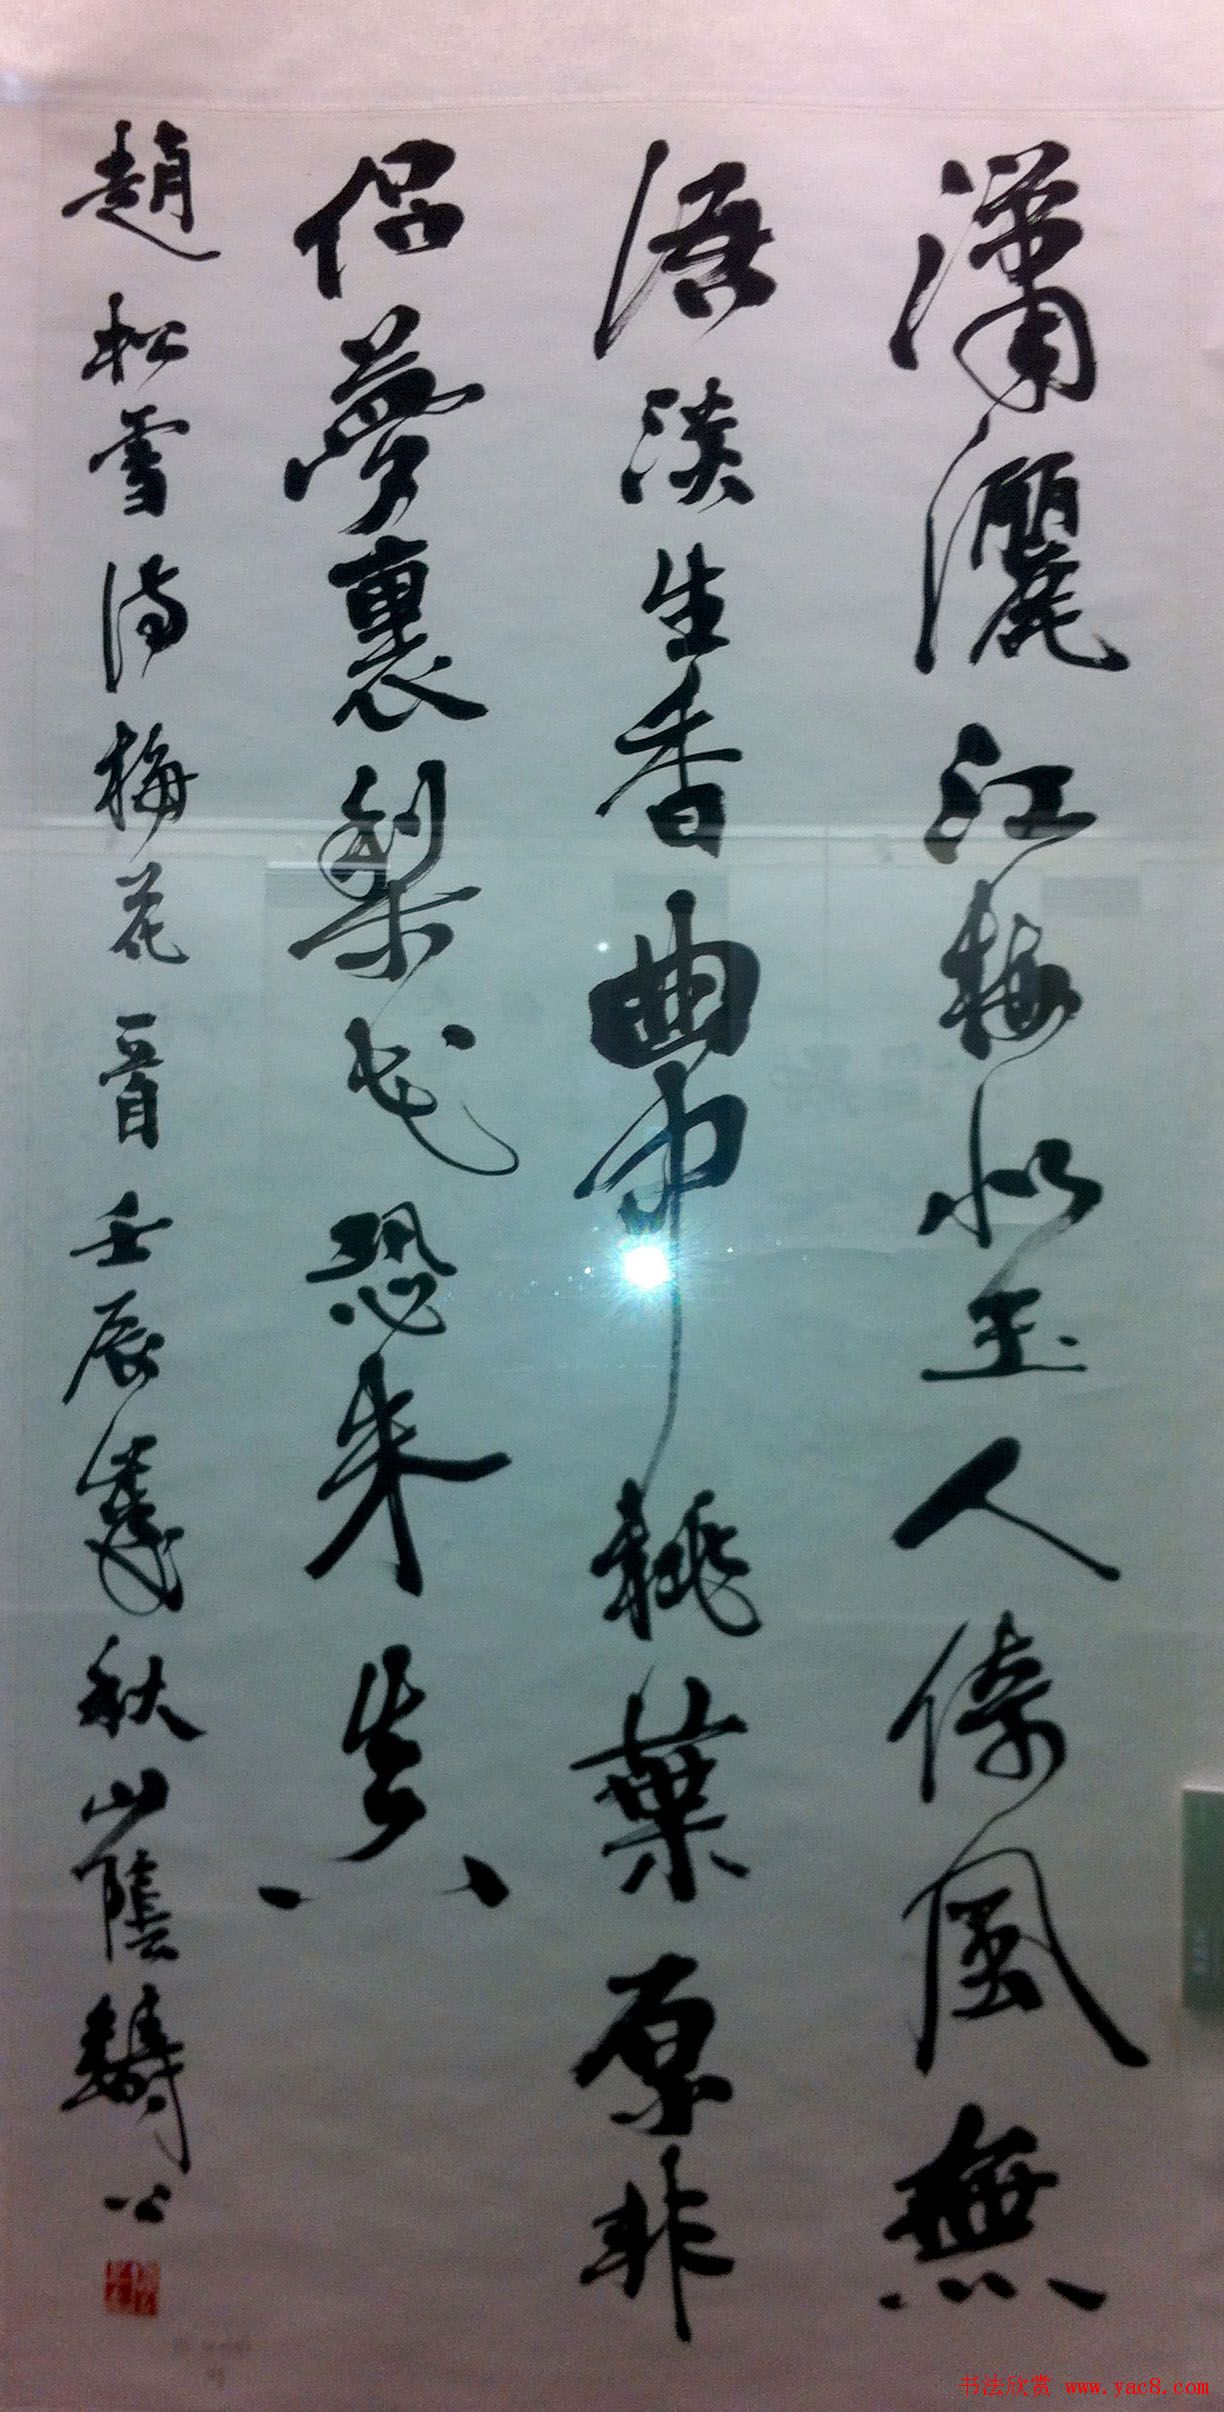 潇灑江梅似玉人倚風無
語淡生香曲中桃葉原非
侣夢裏梨花恐未真
趙松雪詩梅花一首壬辰筆秋山陰鑄公
书法欣赏 www.yac8.com